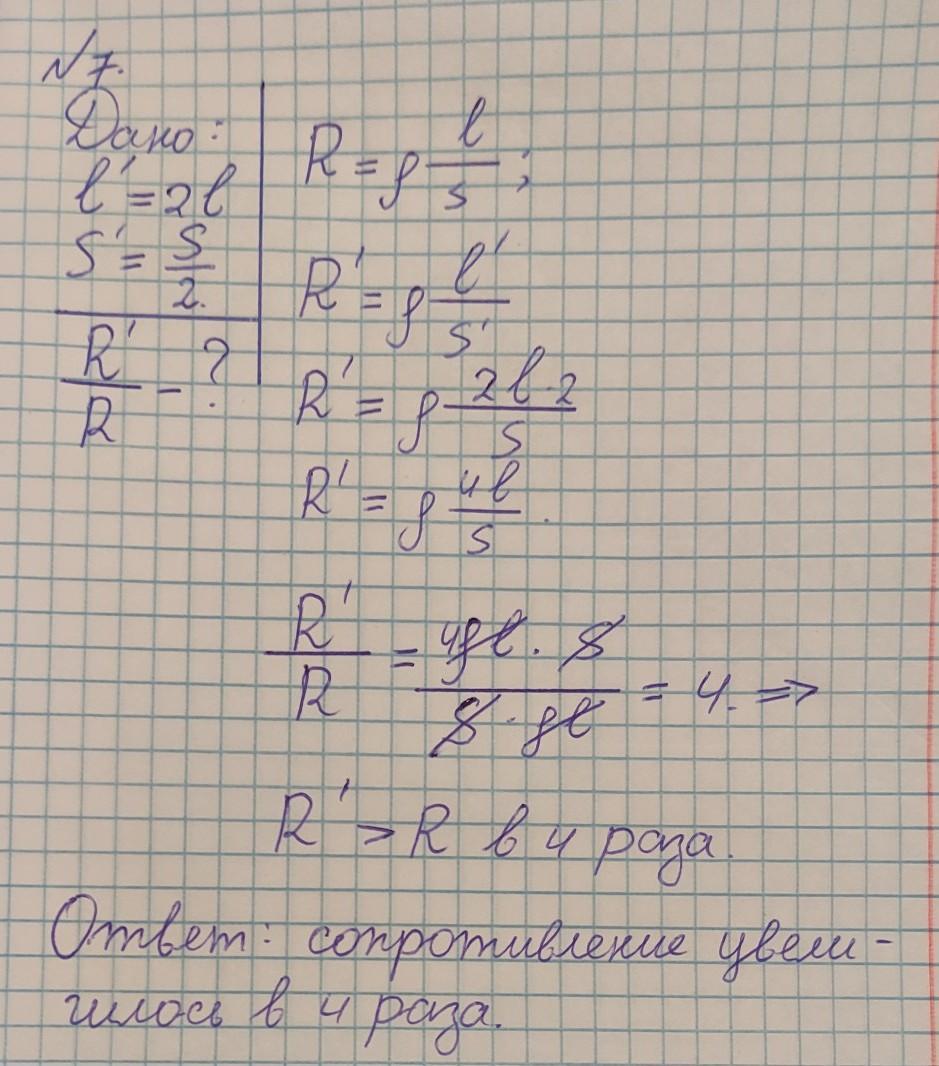 №7.
Дано:
l' = 2l
S' = S/2.
R'/R - ?
R = ρ l/s ;
R' = ρ l'/s'
R' = ρ 2l·2/s
R' = ρ 4l/s .
R'/R = 4ρl · S / S · ρl = 4. =>
R' > R в 4 раза.
Ответ: сопротивление увели-
чилось в 4 раза.